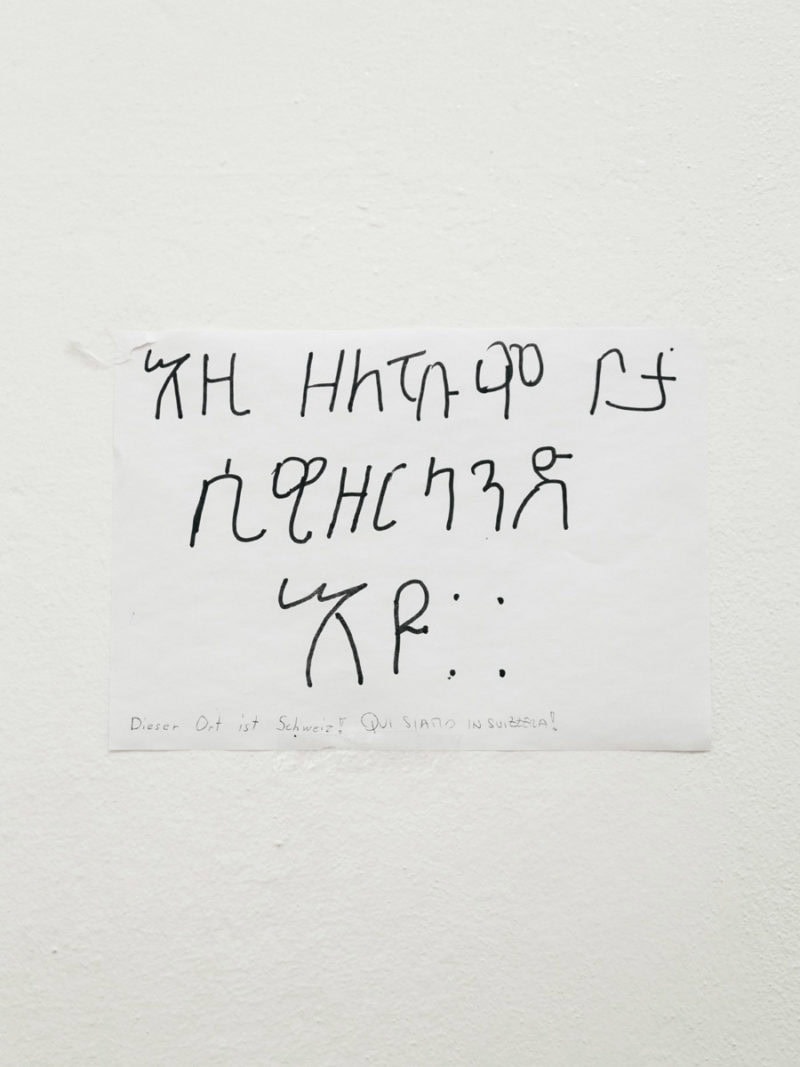 እዚ ቦታ
ሲዊዘርላንድ
እዩ::
Dieser Ort ist Schweiz!! QUI SIAMO IN SUIZZERA!